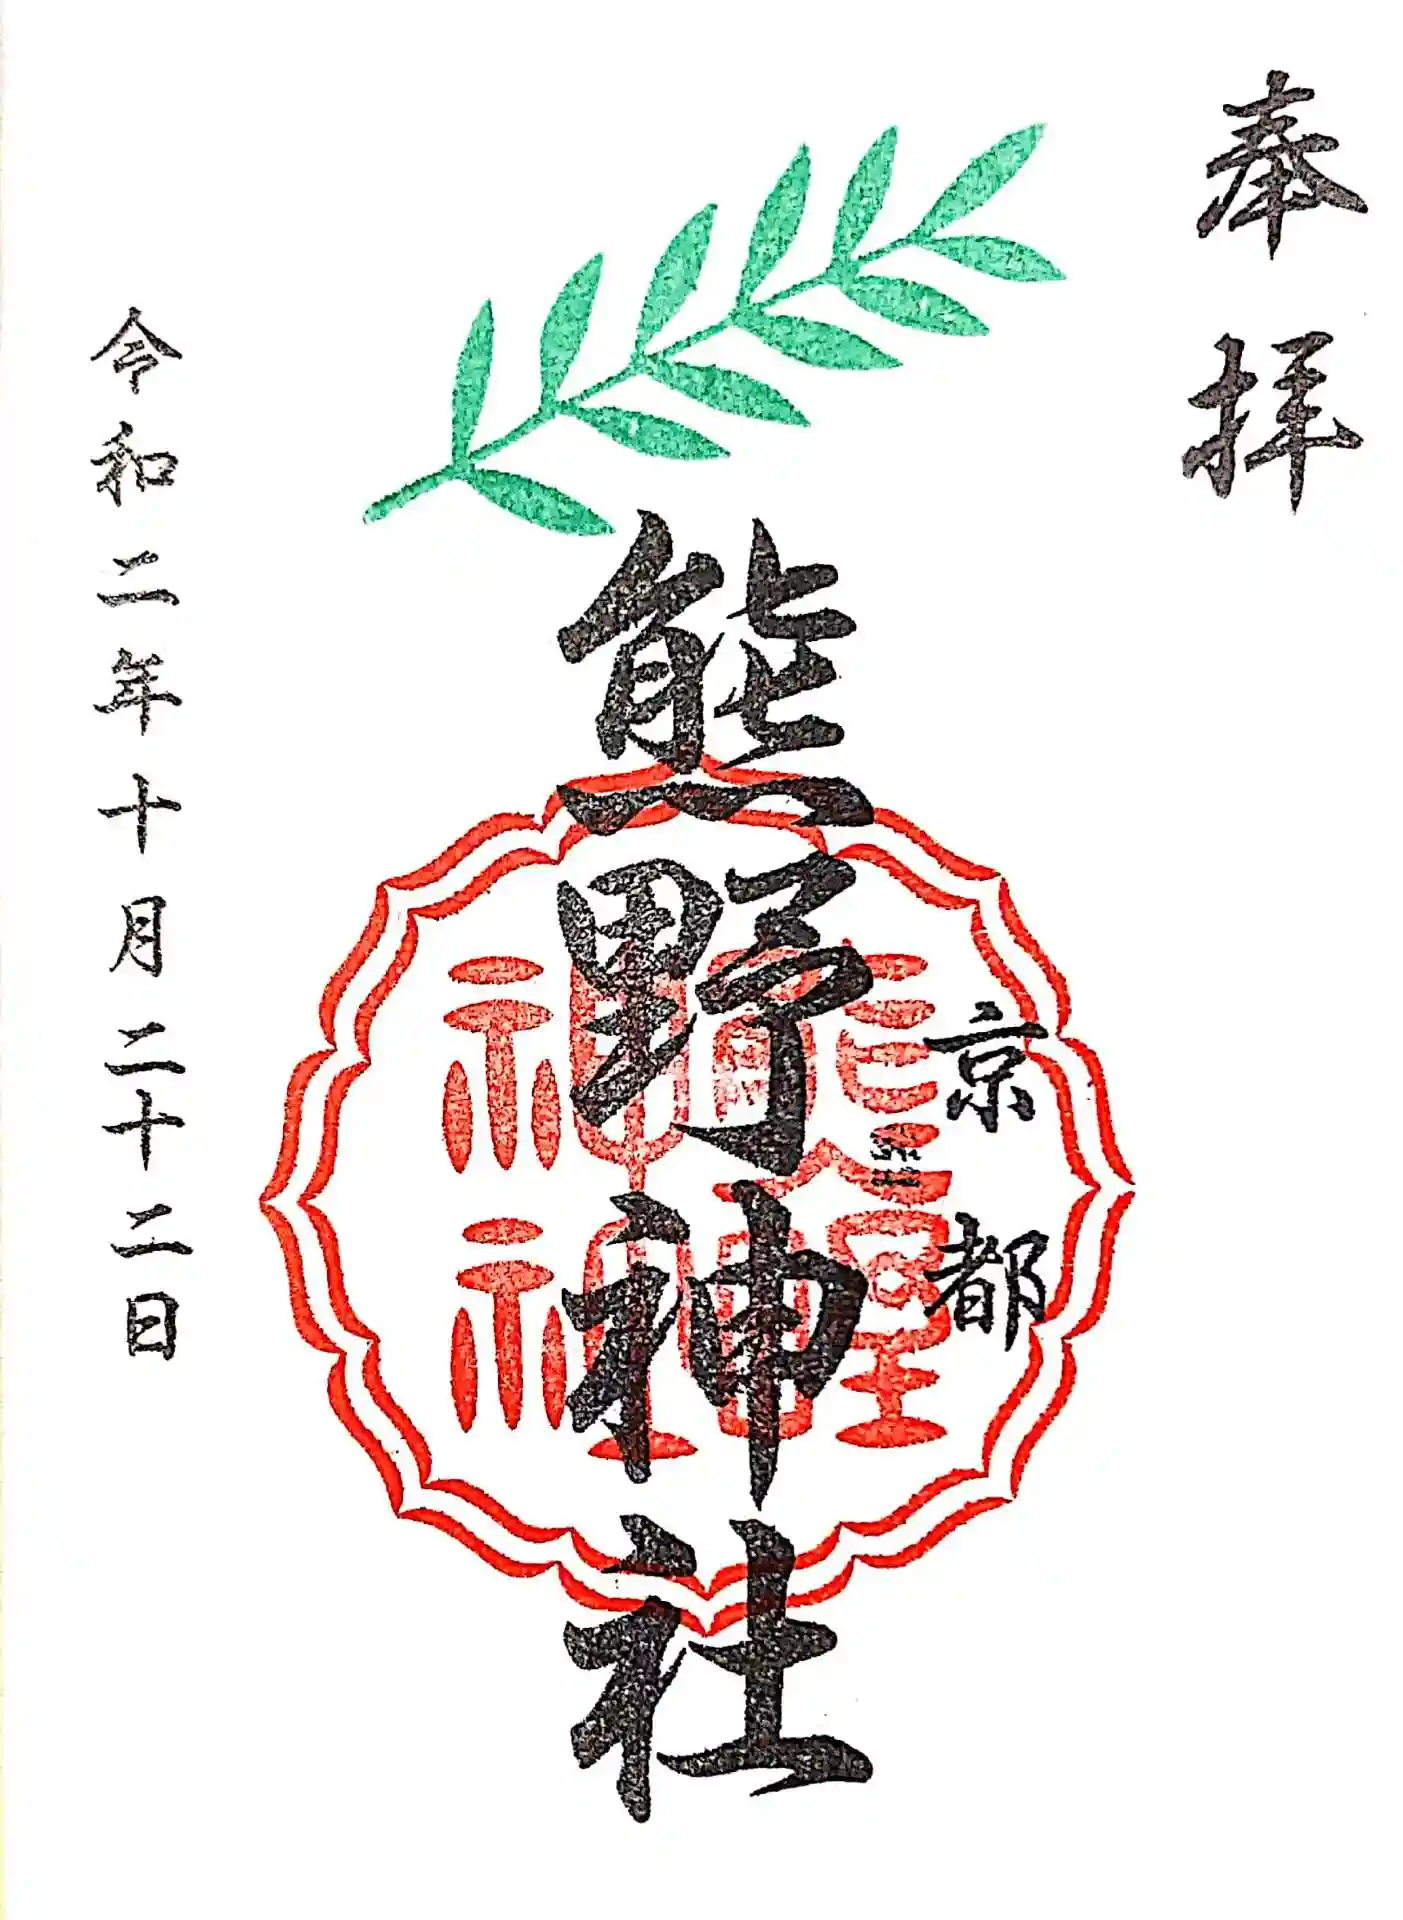 奉拝
京都
熊野神社
令和二年十月二十二日